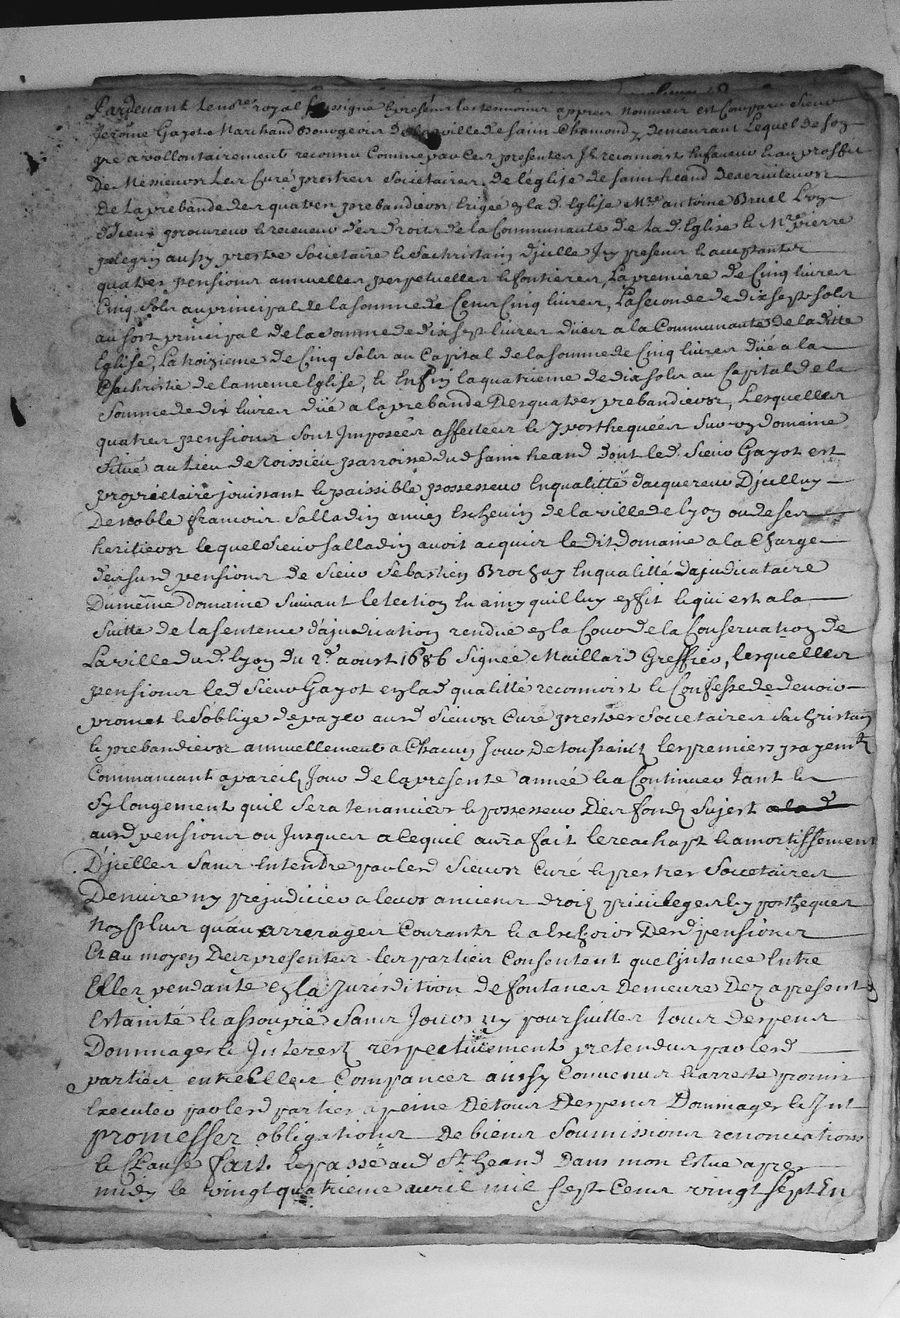 Pardevant le no.re royal soussigné & presens les tesmoins appres nommes est comparu Sieur
Jerôme Gayot Marchand Bourgeois de la ville de Saint Chamond y demeurant Lequel de son
gre a vollontairement reconnu comme par ces presentes Jl reconnoist En faveur & au proffit
De Messieurs Les Curé prestres Societaires de l'eglise de saint heand desserviteurs
de la prebande des quatres prebandiers Erigée en la d. Eglise Mre antoine Bruel L'un
d'Jceux procureur & receveur des droits de la Communauté de la d. Eglise & Mre pierre
pelegrin aussy prestre Societaire & Sachristain d'jcelle Jcy present & acceptants
quatres pensions annuelles perpetuelles & fontieres, La premiere de Cinq livres
Cinq Sols au principal de la somme de Cent Cinq livres, La seconde de dix sept sols
au fort principal de la somme de dix sept livres dües a la Communauté de la ditte
Eglise, La troizieme de Cinq Sols au Capital de la somme de Cinq livres düe a la
Sachristie de la meme Eglise, & Enfin la quatrieme de dix sols au Capital de la
Somme de dix livres düe a la prebande Des quatres prebandiers, Lesquelles
quatres pensions sont Jmposées affectées & Yporthequées Sur un domaine
Situé au Lieu de Roissieu parroisse dud saint heand dont led. Sieur Gayot est
propriétaire jouissant & paissible possesseur En qualitté d'acquereur D'jcelluy
De noble francois Salladin ancien Eschevin de la ville de Lyon ou de ses
heritiers lequel Sieur Salladin avoit acquis le dit Domaine a la Charge
des susd. pensions de Sieur Sebastien Brochay En qualitté d'ajudicataire
Du même Domaine Suivant l'Election En amy qu'il luy en fit & qui est a la
Suitte de la sentence d'ajudication rendüe en la Cour de la Conservation de
La ville dud. Lyon du 2d aoust 1686 Signée Maillard Greffier, lesquelles
pensions led. Sieur Gayot en lad qualitté reconnoist & Confesse de devoir
promet & s'oblige de payer ausd. Sieurs Curé prestres Societaires Sachristain
& prebandiers annuellement a Chacun Jour De toussaintz les premiers payemts
Commancant a pareil Jour de la presente année & a Continuer tant &
Sy longement qu'il sera tenancier & possesseur Des fondz Sujest
ausd. pensions ou Jusques a ce qu'il aura fait le reachapt & amortissement
D'jcelles sans Entendre par lesd. Sieurs Curé & prestres Societaires
De nuire ny prejudicier a leurs anciens droitz privileges Yportheques
Non plus qu'aux arrerages Courants & a Eschoirs Desd. pensions
Et au moyen Des presentes les parties Consentent que l'jnstance Entre
Elles pendante en la Jurisdition de fontanes Demeure Dez a present
Estainte & assoupie Sans Jours ny poursuittes tous despens
Dommages & Jnterest respectivement pretendus par lesd.
parties entre Elles Compancés aussy Convenus & arresté promis
Executer par lesd. parties a peine De tous Despens Dommages & Jnt
promesses obligations De biens Soumissions renonciations
& Clause fait & passé aud. St heand Dans mon Estude apres
midy le vingt quatrieme avril mil sept Cens vingt sept En